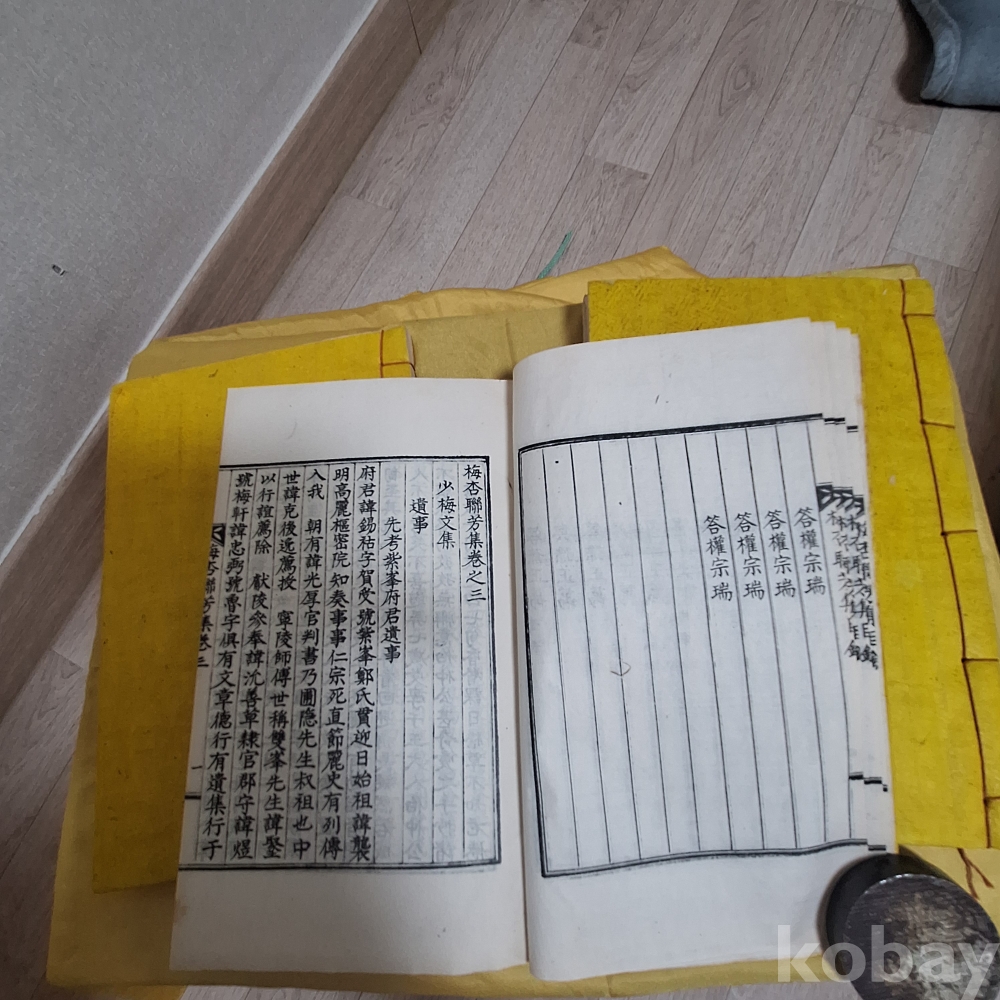 答權宗瑞
答權宗瑞
答權宗瑞
答權宗瑞
梅杏聯芳集卷之三
少梅文集
遺事
先考紫峯府君遺事
府君諱錫祜字賀受號紫峯鄭氏貫迎日始祖諱襲
明高麗樞密院知奏事事仁宗死直節麗史有列傳
入我 朝有諱光厚官判書乃圃隐先生叔祖也中
世諱克後逸薦授 寧陵師傅世稱雙峯先生諱
以行誼薦除 獻陵參奉諱沈善草隸官郡守諱煜
號梅軒諱忠弼號魯宇俱有文章德行有遺集行于
梅杏聯芳集卷三
一
kobay